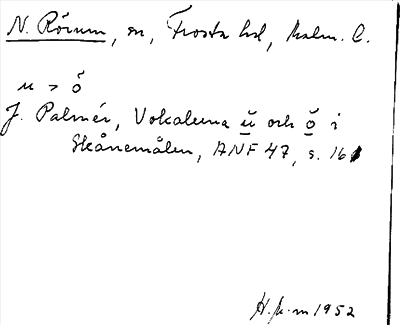 N. Rörum, sn, Frosta hd, Malm. l.
u > ŏ
J. Palmér, Vokalerna ŭ och ŏ i
Skånemålen, ANF 47, s. 16
H. 1952